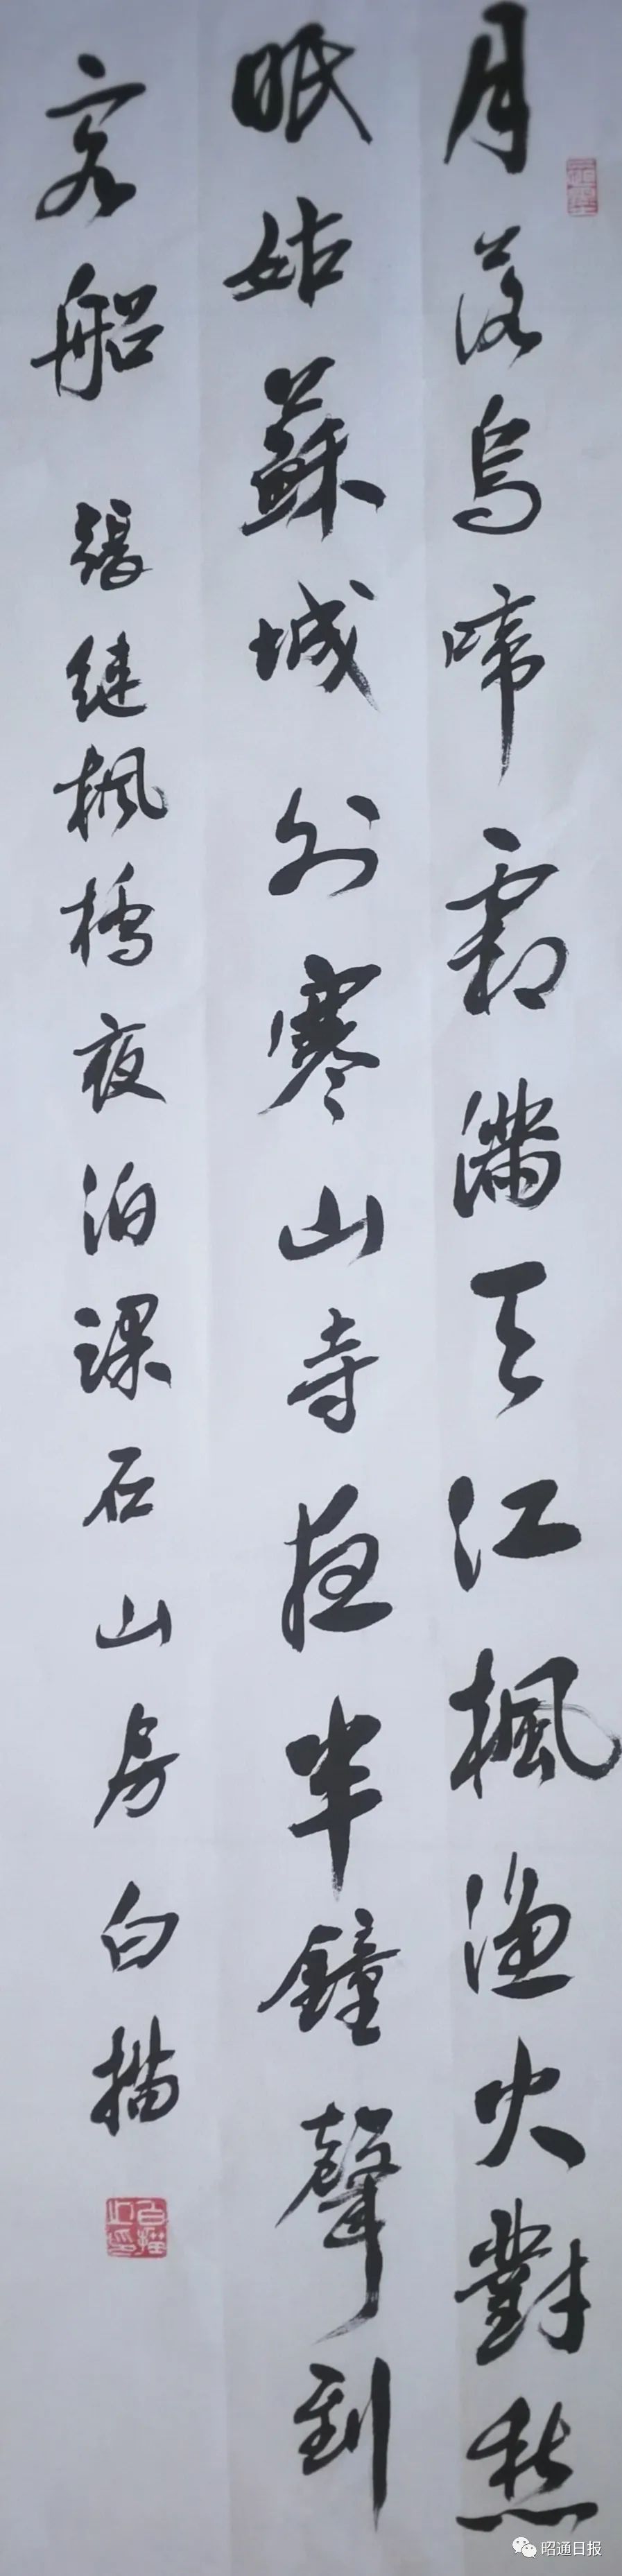 月落烏啼霜滿天江楓漁火對愁
眠姑蘇城外寒山寺夜半鐘聲到
客船 張継枫橋夜泊課石山房白描
白描之印
昭通日报